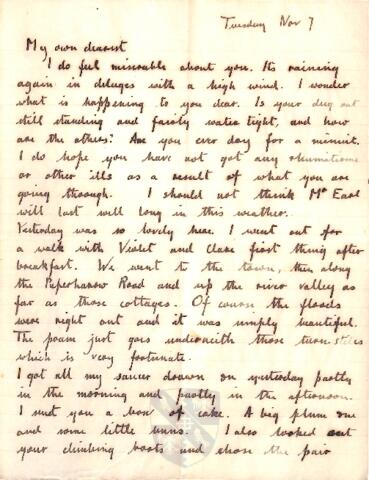 Tuesday Nov 7
My own dearest
I do feel miserable about you. Its raining
again in deluges with a high wind. I wonder
what is happening to you dear. Is your dug out
still standing and fairly water tight, and how
are the others? Are you ever dry for a minuit.
I do hope you have not got any rheumatisme
or other ills as a result of what you are
going through. I should not think Mr Earl
will last well long in this weather.
Yesterday was so lovely here. I went out for
a walk with Violet and Clare first thing after
breakfast. We went to the town, then along
the Peperharow Road and up the river valley as
far as those cottages. Of course the floods
were right out and it was simply beautiful.
The pram just goes underneith those turn-stiles
which is very fortunate.
I got all my saucer drawn on yesterday partly
in the morning and partly in the afternoon.
I sent you a box of cake. A big plum one
and some little buns. I also looked out
your climbing boots and chose the pair